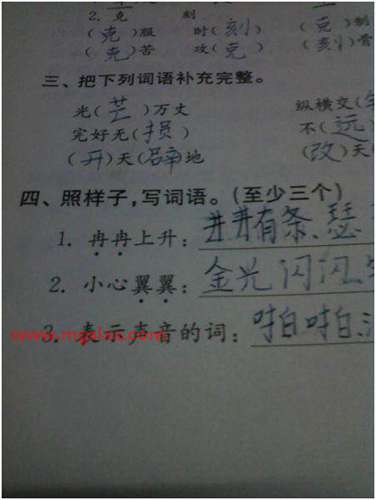 2. 克 刻
(克)服 时(刻) (克)制
(克)苦 攻(克) (刻)骨
三、把下列词语补充完整。
光(芒)万丈 纵横交(
完好无(损) 不(远)
(开)天(辟)地 (改)天
四、照样子,写词语。(至少三个)
1. 冉冉上升: 井井有条、瑟
2. 小心翼翼: 金光闪闪、
3. 表示声音的词: 啪啪、